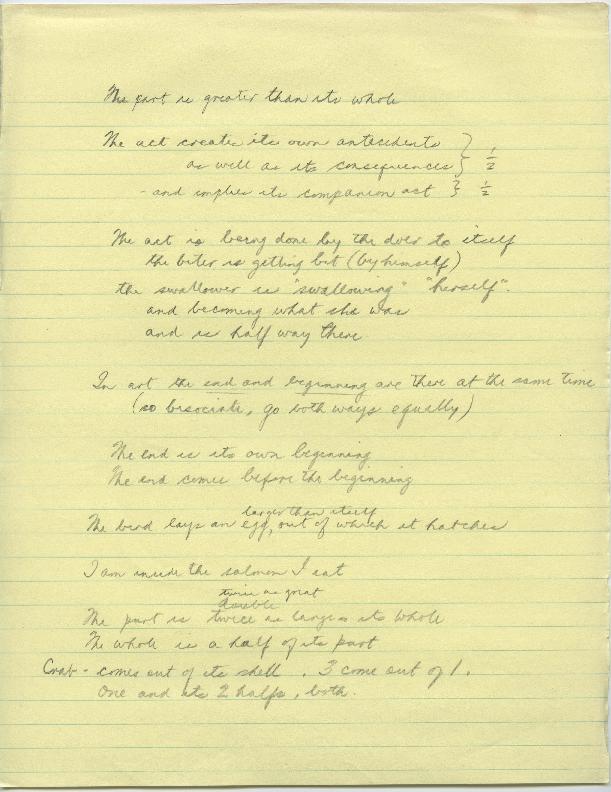 The part is greater than its whole
The act creates its own antecedents } 1/2
as well as its consequences
- and implies its companion act } 1/2
The act is being done by the doer to itself
the biter is getting bit (by himself)
the swallower is "swallowing" "herself".
and becoming what she was
and is half way there
In art the end and beginning are there at the same time
(so bisociate, go both ways equally)
The end is its own beginning
The end comes before the beginning
larger than itself
The bird lays an egg, out of which it hatches
I am inside the salmon I eat
twice as great
double
The part is twice as large as its whole
The whole is a half of its part
Crab - comes out of its shell. 3 come out of 1.
One and its 2 halfs, both.